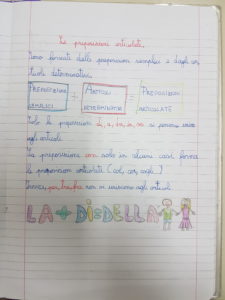 Le preposizioni articolate.
Sono formate dalle preposizioni semplici e dagli ar_
ticoli determinativi.
PREPOSIZIONI SEMPLICI + ARTICOLI DETERMINATIVI = PREPOSIZIONI ARTICOLATE
Solo le preposizioni di, a, da, in, su si possono unire
agli articoli.
La preposizione con solo in alcuni casi forma
le preposizioni articolate (col, coi, cogli...)
Invece, per tra fra non si uniscono agli articoli.
LA+DI=DELLA